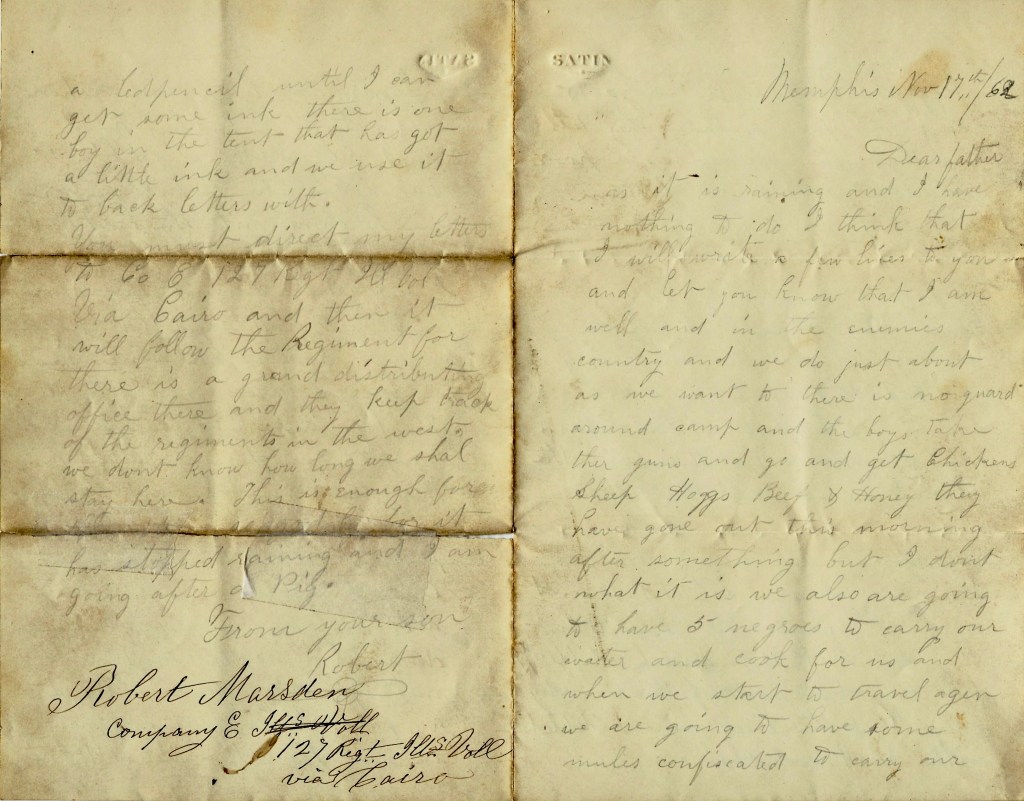 SATIN
Memphis Nov 17th/62
Dear father
as it is raining and I have
nothing to do I think that
I will write a few lines to you
and let you know that I am
well and in the enemies
country and we do just about
as we want to there is no guard
around camp and the boys take
ther guns and go and get Chickens
Sheep Hoggs Beef & Honey they
have gone out this morning
after something but I don't
what it is we also are going
to have 5 negroes to carry our
water and cook for us and
when we start to travel agen
we are going to have some
mules confiscated to carry our
a ledpencil until I can
get some ink there is one
boy in the tent that has got
a little ink and we use it
to back letters with.
You must direct my letters
to Co E 127 Regt Ill Vol
Via Cairo and then it
will follow the Regiment for
there is a grand distributing
office there and they keep track
of the regiments in the west,
we dont know how long we shal
stay here. This is enough for
for it
has stopped raining and I am
going after a Pig.
From your son
Robert
Robert Marsden
Company E Ills Voll
127 Regt. Ills Voll
via Cairo